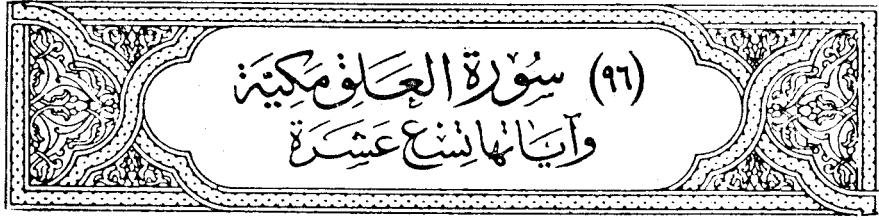 (٩٦) سُورَة العَلَق مَكِيَّة
وَآيَاتهَا تِسْع عَشَرَة